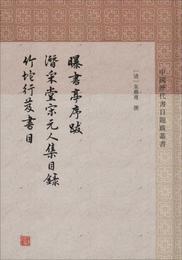 中國歷代書目題跋叢書
[清] 朱彝尊 撰
曝書亭序跋
潛采堂宋元人集目錄
竹垞行笈書目